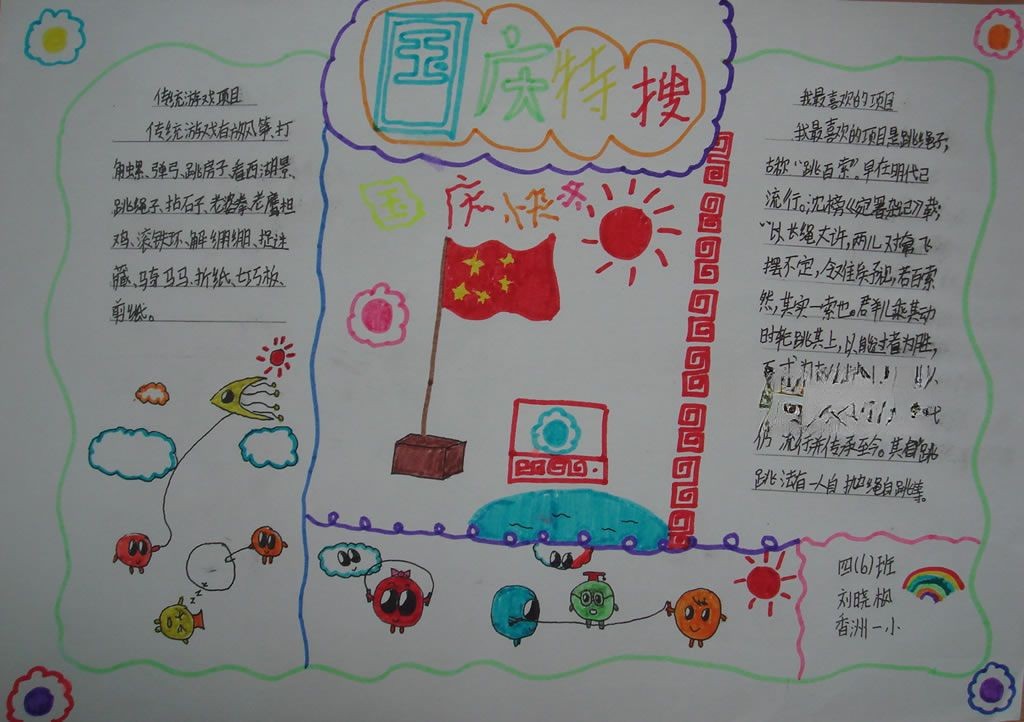 国庆特搜
国庆快乐
传统游戏项目
传统游戏有放风筝、打
陀螺、弹弓、跳房子、看西湖景、
跳绳子、抬石子、老婆拳、老鹰担
鸡、滚铁环、解绷绷、捉迷
藏、马骑马马、折纸、七巧板、
剪纸。
我最喜欢的项目
我最喜欢的项目是跳绳子,
古称“跳百索”。早在明代已
流行。沈榜《宛署杂记》载:
“以长绳丈许,两儿对拿飞
摆不定,令难凖视,若百索
然,其实一索也。群儿乘其动
时轮跳其上,以能过者为胜,
仍流行并传承至今。其自跳
跳法有一人自抛绳自跳等。
四(6)班
刘晓枫
香洲一小